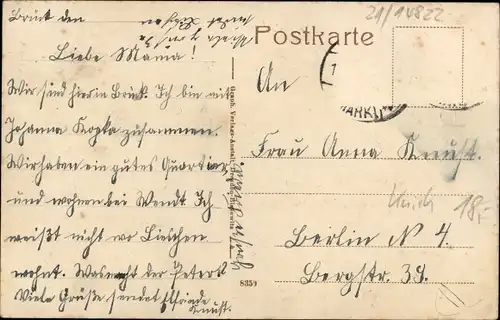 Brück den
Liebe Mama!
Wir sind hier in Brück. Ich bin mit
Johanna Kopka zusammen.
Wir haben ein gutes Quartier
und wohnen bei Wendt. Ich
weißt nicht wo Lieschen
wohnt. Was macht der Peter
Viele Grüße sendet Elfriede
Knust.
Postkarte
21/10822
1
An
Frau Anna Knust.
18,-
Berlin N 4.
Bergstr. 38.
8359